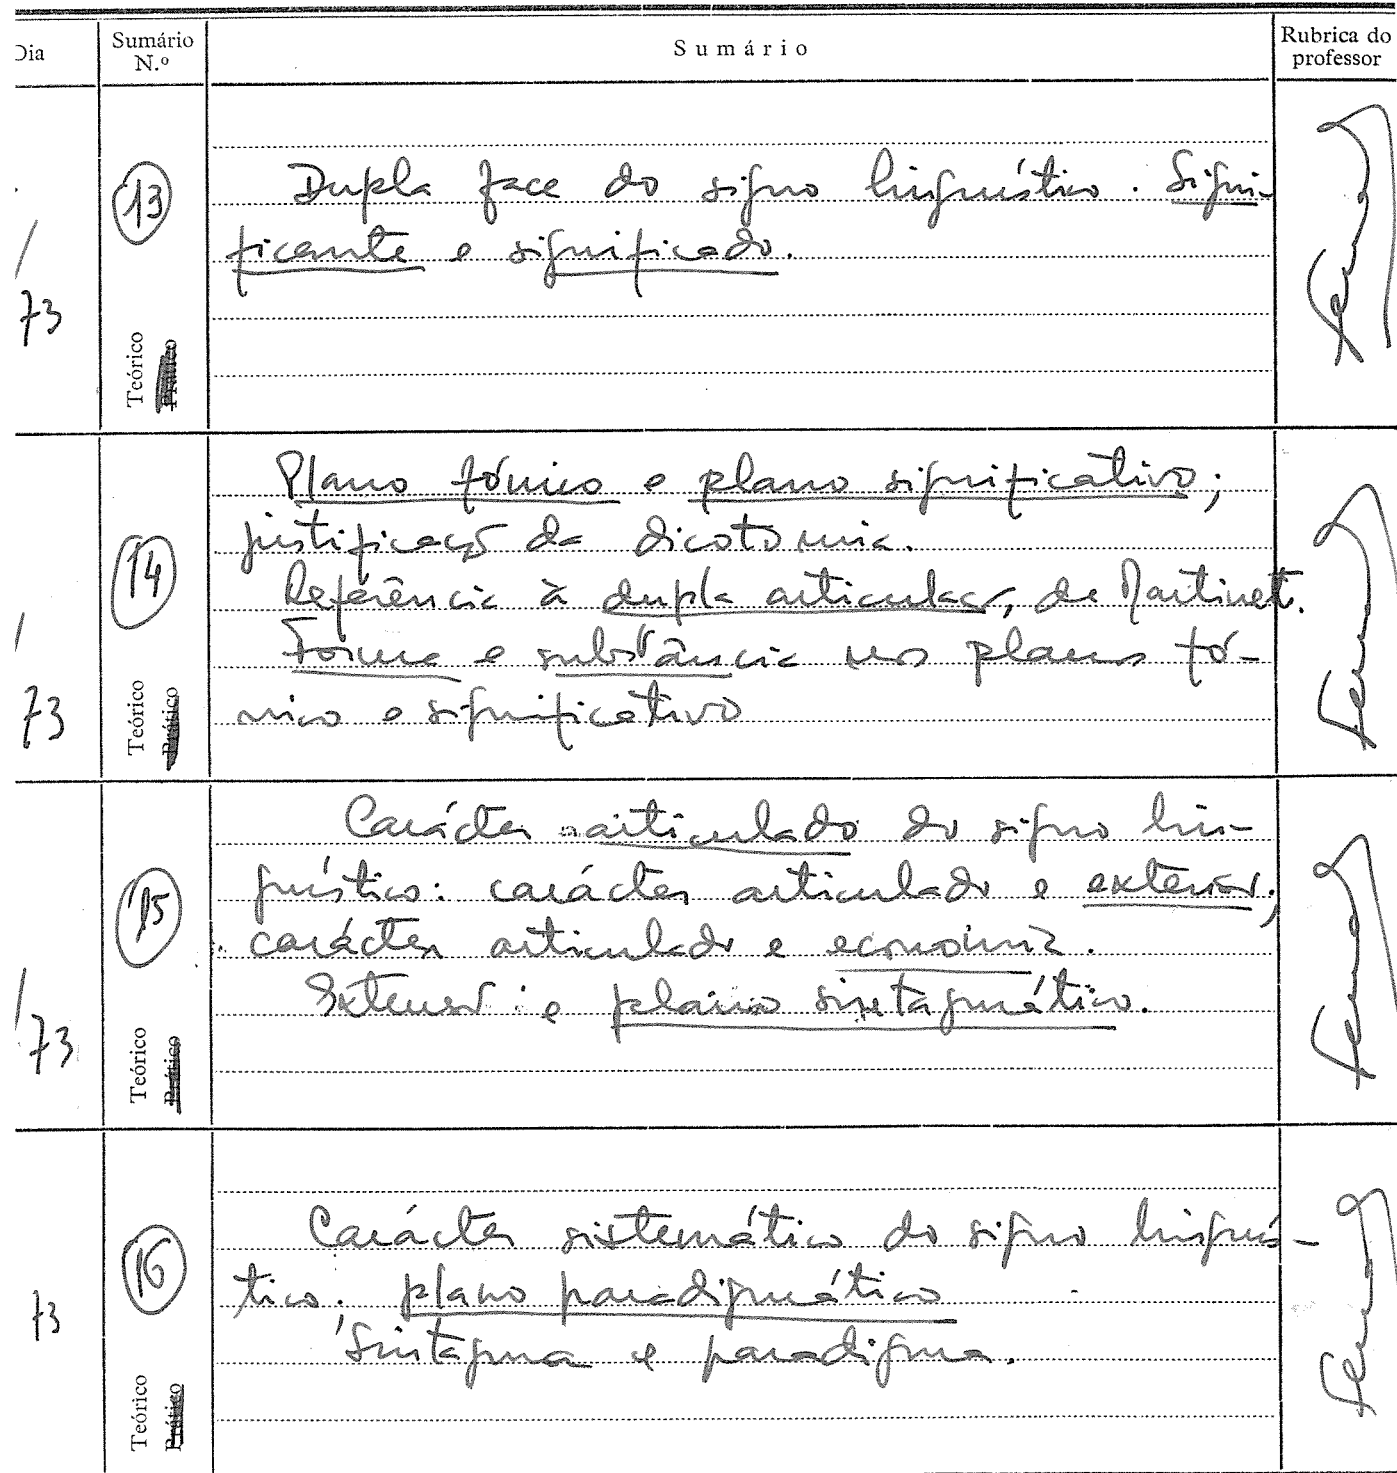 Dia Sumário N.º Sumário Rubrica do professor
13
Dupla face do signo linguístico. Signi-
ficante e significado.
73
Teórico
Prático
14
Plano fónico e plano significativo;
justificação da dicotomia.
Referência à dupla articulação, de Martinet.
Forma e substância nos planos fó-
nico e significativo
73
Teórico
Prático
15
Carácter articulado do signo lin-
guístico: carácter articulado e extensão;
carácter articulado e economia.
Extensão e plano sintagmático.
73
Teórico
Prático
16
Carácter sistemático do signo linguís-
tico. plano paradigmático
Sintagma e paradigma.
73
Teórico
Prático